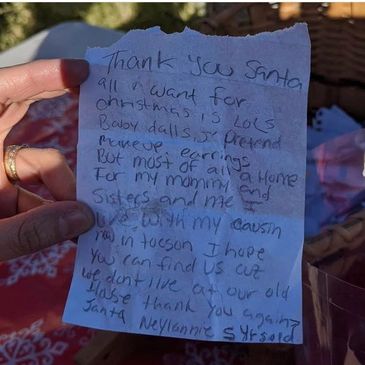 Thank you Santa
all i want for
christmas is LOLS
Baby dalls, pretend
makeup, earrings
But most of all a Home
For my mommy and
Sisters and me I
live with my causin
now in tocson I hope
You can find us cuz
we dont live at our old
House thank you again
Santa Neylannie 5 yrs old